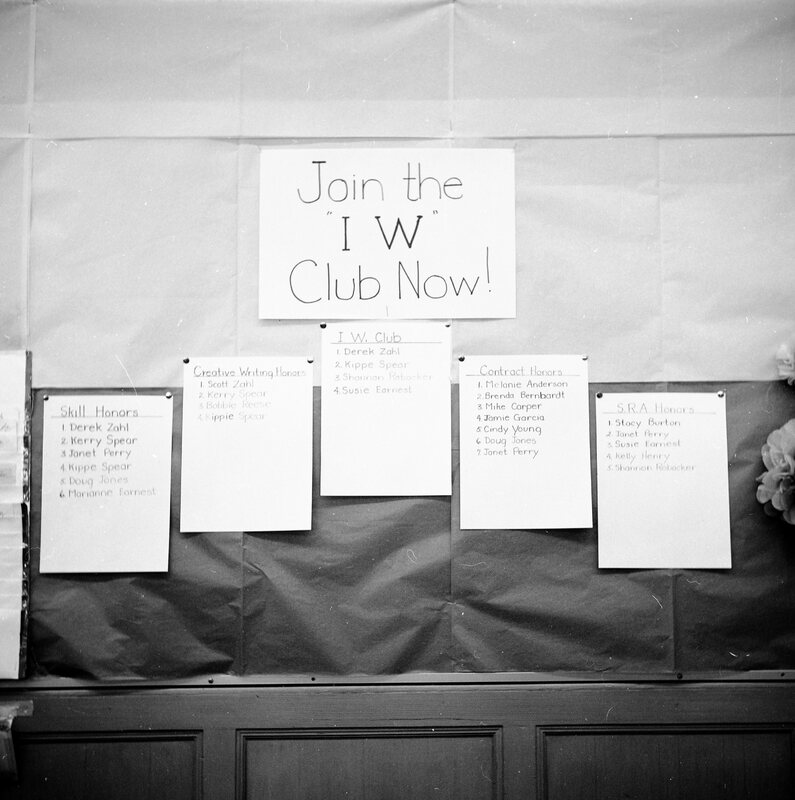 Join the
"I W"
Club Now!
Skill Honors
1. Derek Zahl
2. Kerry Spear
3. Janet Perry
4. Kippe Spear
5. Doug Jones
6. Marianne Earnest
Creative Writing Honors
1. Scott Zahl
2. Kerry Spear
3. Bobbie Reese
4. Kippie Spear
I. W. Club
1. Derek Zahl
2. Kippe Spear
3. Shannon Robacker
4. Susie Earnest
Contract Honors
1. Melanie Anderson
2. Brenda Bernhardt
3. Mike Carper
4. Jamie Garcia
5. Cindy Young
6. Doug Jones
7. Janet Perry
S.R.A Honors
1. Stacy Burton
2. Janet Perry
3. Susie Earnest
4. Kelly Henry
5. Shannon Robacker